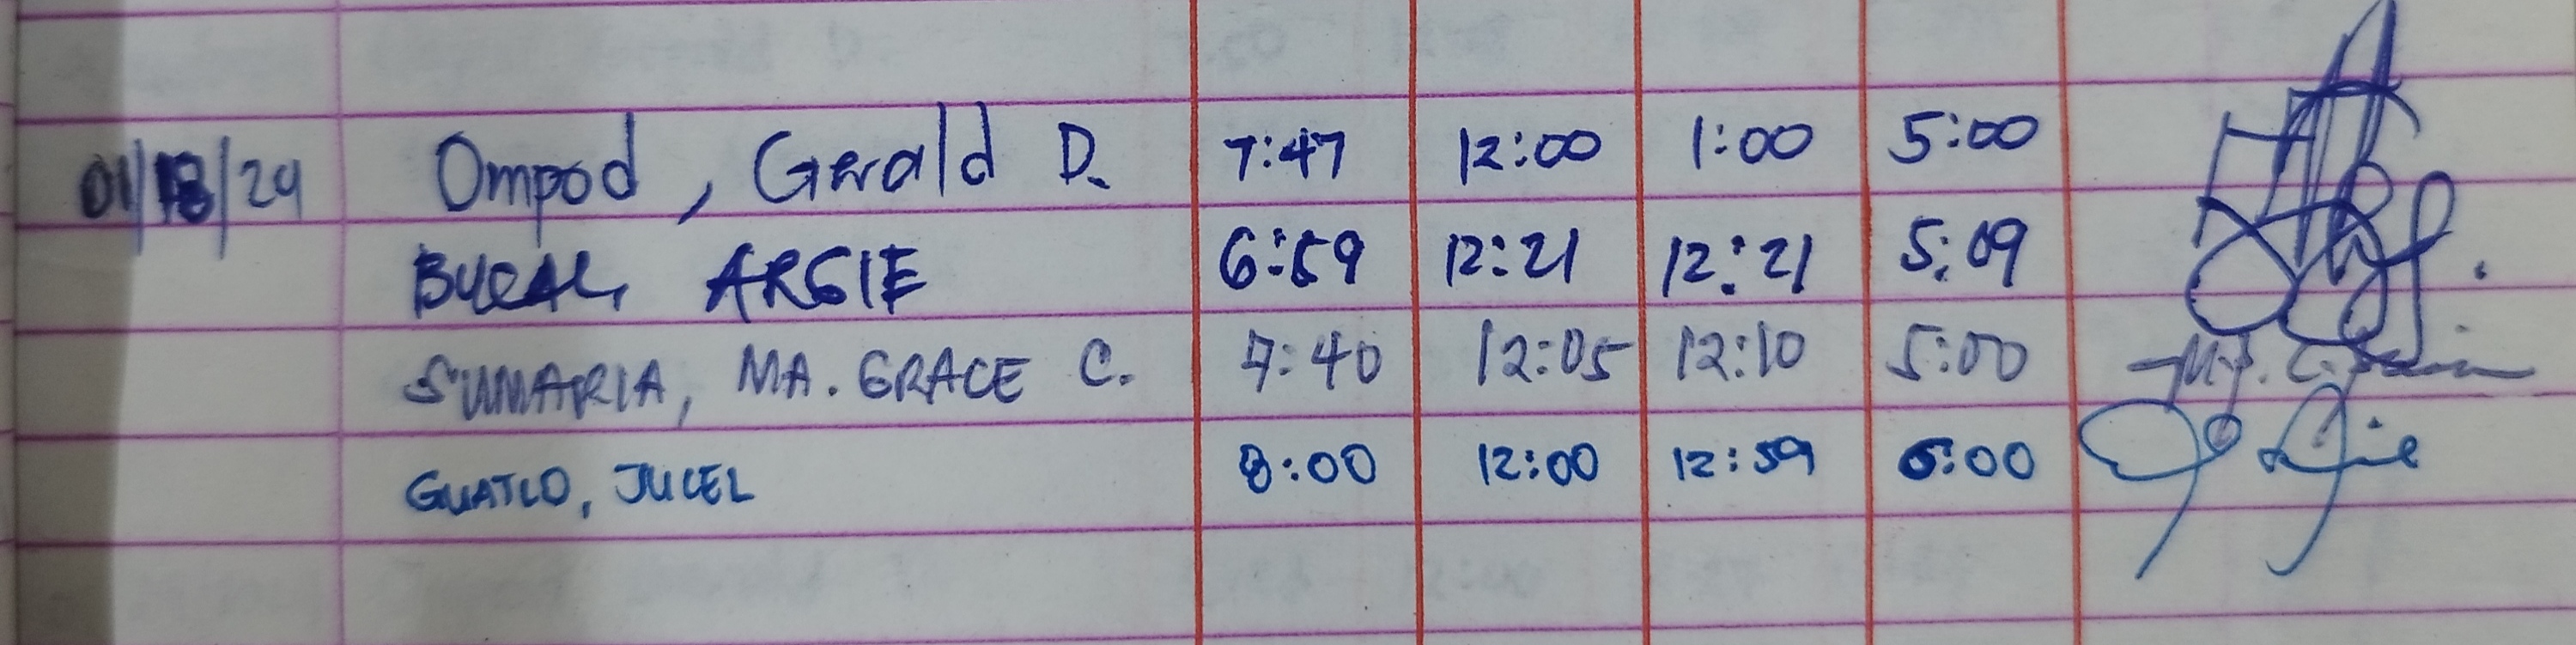 01/18/24 Ompod, Gerald D. 7:47 12:00 1:00 5:00
BUCAL, ARGIE 6:59 12:21 12:21 5:09
SUMARIA, MA. GRACE C. 7:40 12:05 12:10 5:00
GUATLO, JUCEL 8:00 12:00 12:59 5:00